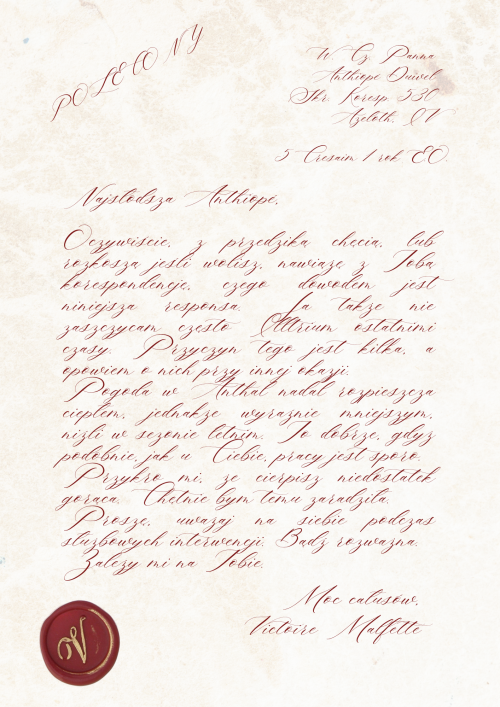 POLECONY
W. Cz. Panna
Anthiope Duivel
Skr. Koresp. 536
Azeloth, IV
5 Cresaim 1 rok EO.
Najsłodsza Anthiope,
Oczywiście, z przedziką chęcią, lub
rozkoszą jeśli wolisz, nawiążę z Tobą
korespondencję, czego dowodem jest
niniejsza responsa. Ja także nie
zaszczycam często Atrium ostatnimi
czasy. Przyczyn tego jest kilka, a
opowiem o nich przy innej okazji.
Pogoda w Anthal nadal rozpieszcza
ciepłem, jednakże wyraźnie mniejszym,
niźli w sezonie letnim. To dobrze, gdyż
podobnie, jak u Ciebie, pracy jest sporo.
Przykro mi, że cierpisz niedostatek
gorąca. Chętnie bym temu zaradziła.
Proszę, uważaj na siebie podczas
służbowych interwencji. Bądź rozważna.
Zależy mi na Tobie.
Moc całusów,
Victoire Malfette
V